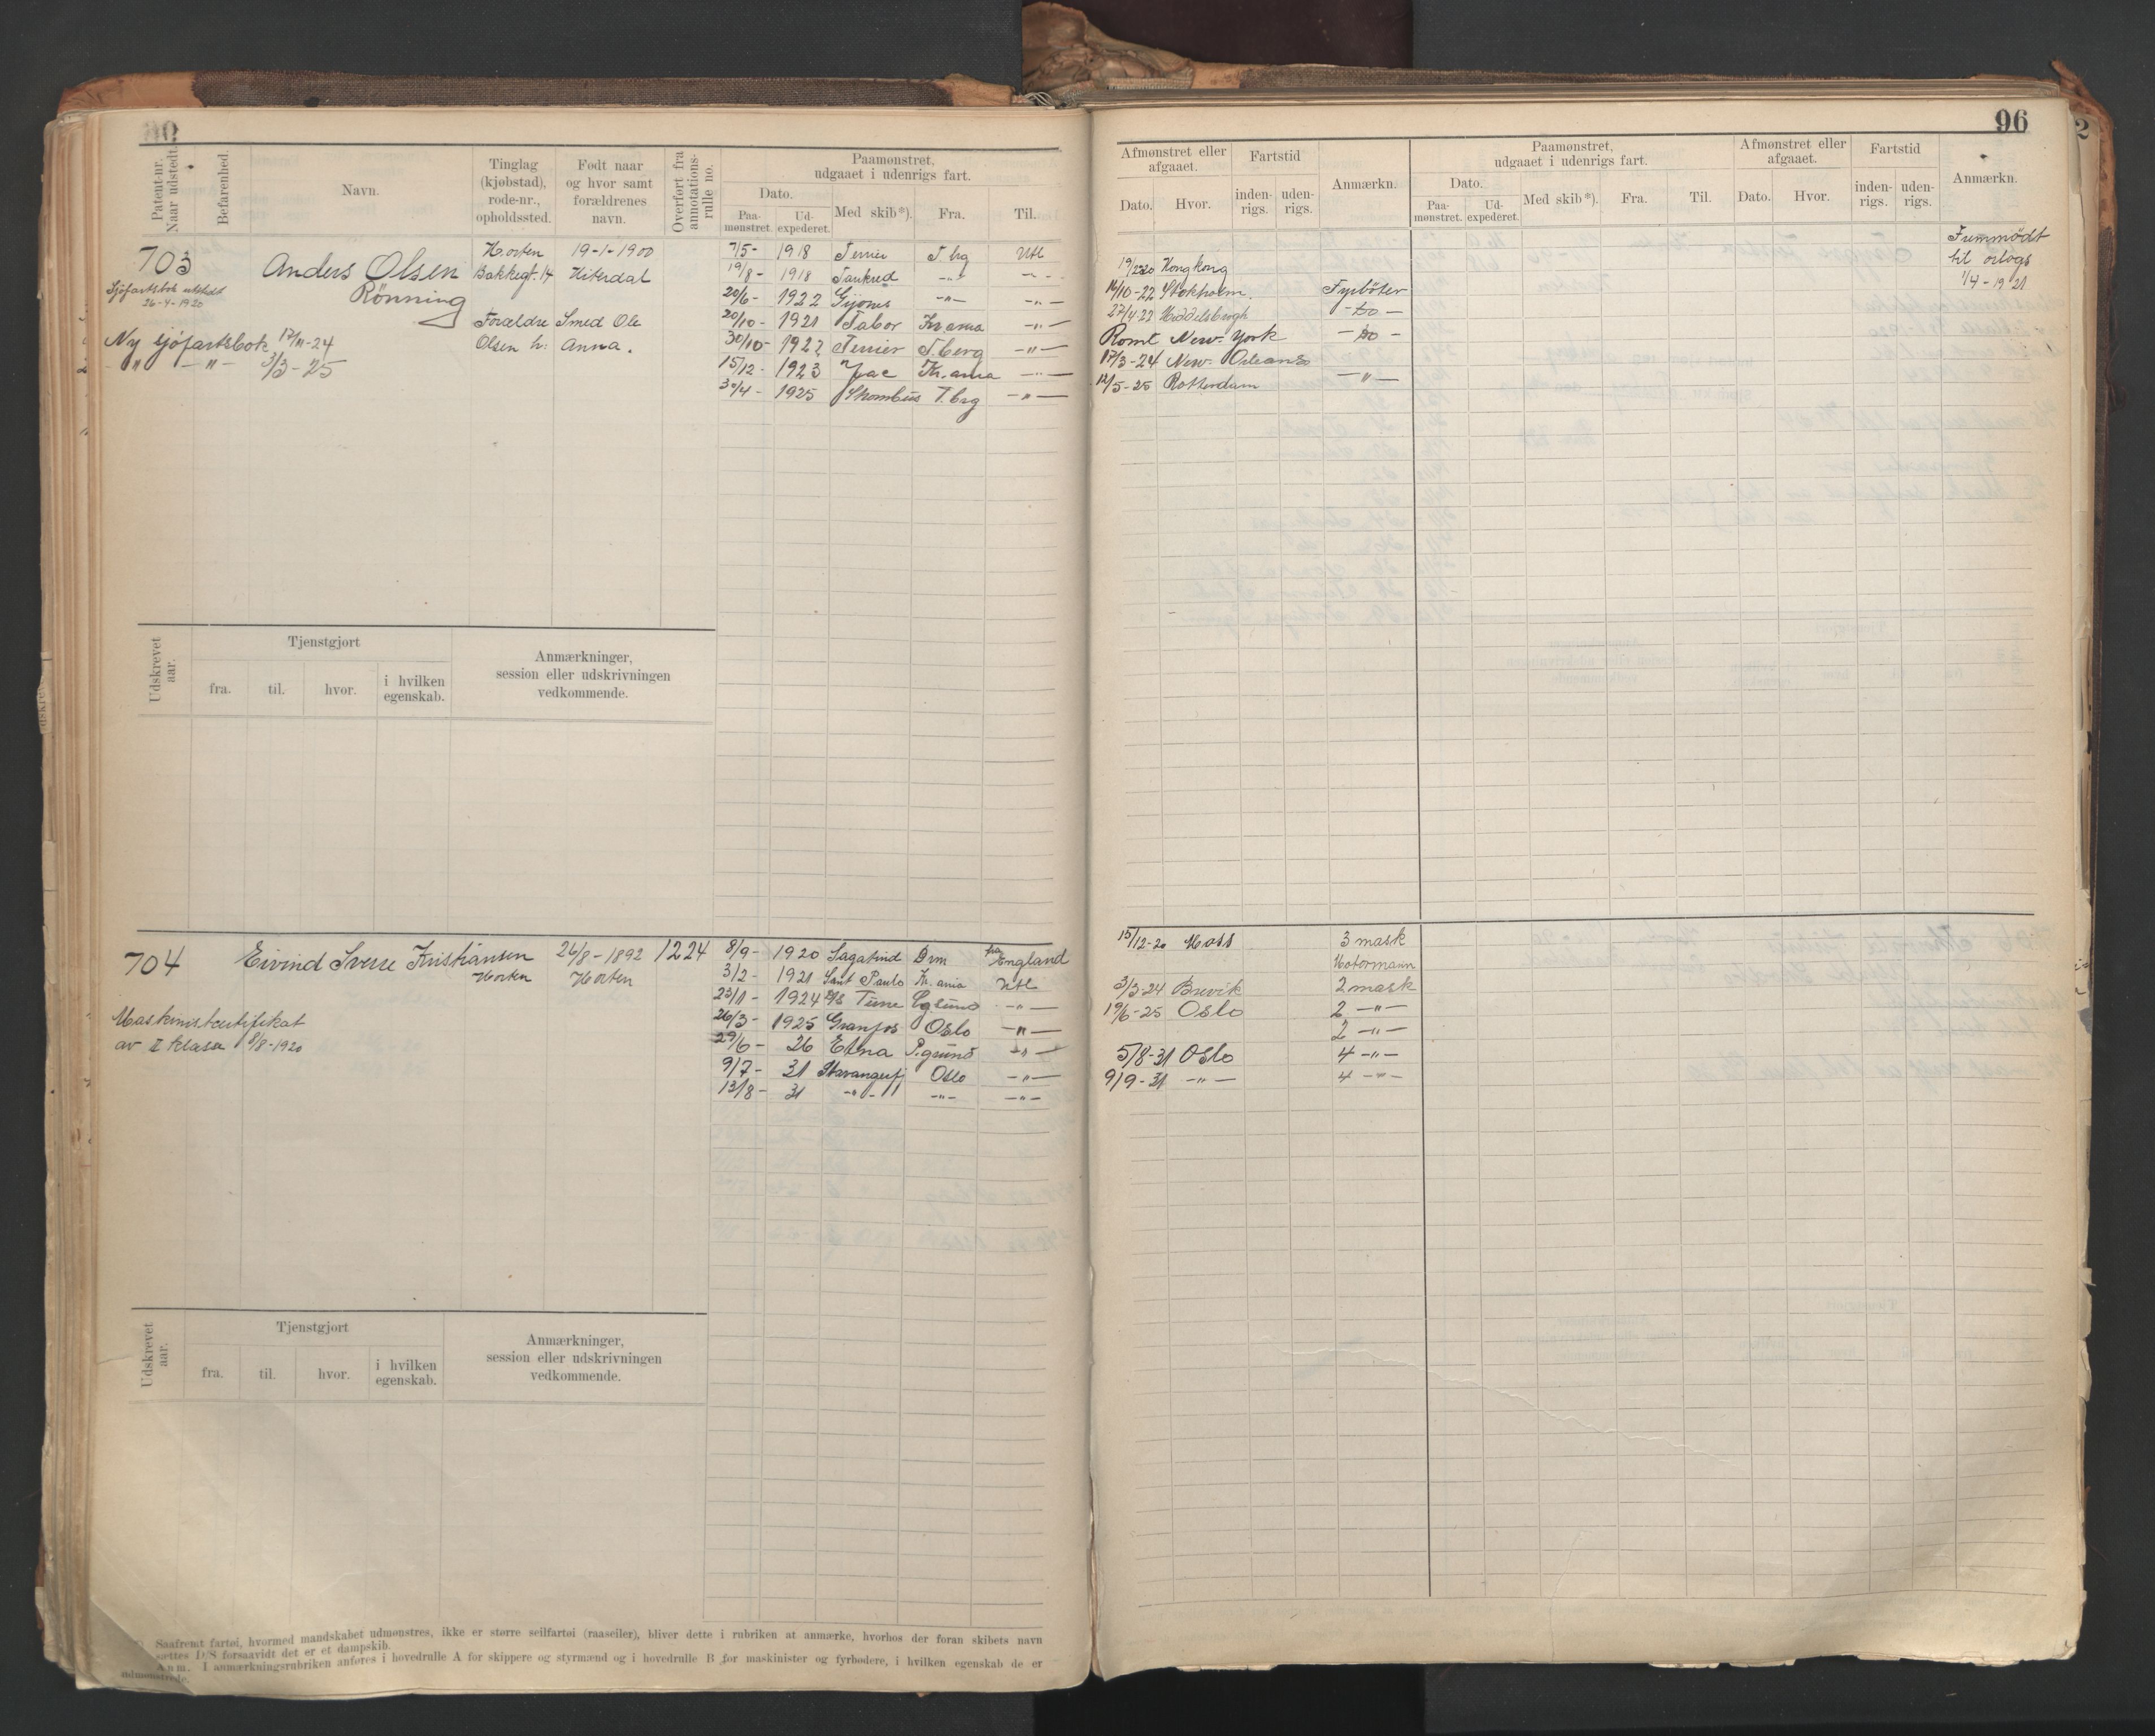 96
Patent-nr. Naar udstedt.
Befarenhed.
Navn.
Tinglag (kjøbstad), rode-nr., opholdssted.
Født naar og hvor samt forældrenes navn.
Overført fra annotations-rulle no.
Paamønstret, udgaaet i udenrigs fart.
Dato.
Paa-mønstret.
Ud-expederet.
Med skib*).
Fra.
Til.
Afmønstret eller afgaaet.
Dato.
Hvor.
Fartstid
inden-rigs.
uden-rigs.
Anmærkn.
Paamønstret, udgaaet i udenrigs fart.
Dato.
Paa-mønstret.
Ud-expederet.
Med skib*).
Fra.
Til.
Afmønstret eller afgaaet.
Dato.
Hvor.
Fartstid
inden-rigs.
uden-rigs.
Anmærkn.
703
Sjøfartsbok utstedt
26-4-1920
Ny sjøfartsbok 17/11-24
" -"- 3/3-25
Anders Olsen
Rönning
Horten 19-1-1900
Bakkegt. 14 Hiterdal
Forældre Smed Ole
Olsen h: Anna.
7/5- 1918 Terrier T.brg Utl
19/8- 1918 Tankred -"- -"-
20/6- 1922 -"- -"-
20/10- 1921 Tabor Kr.ania -"-
30/10- 1922 Terrier T.berg -"-
15/12- 1923 Kr.ania -"-
30/4- 1925 T.brg -"-
Hongkong
14/10-22 Stokholm. Fyrböter
27/4-22 -do-
Romt New-York -do-
17/3-24 New-Orleans
12/5-25 Rotterdam -"-
Fremmödt
til orlogs
1/4-1921
Udskrevet aar.
Tjenstgjort
fra.
til.
hvor.
i hvilken egenskab.
Anmærkninger, session eller udskrivningen vedkommende.
704
Eivind Sverre Kristiansen
Horten
26/8-1892
Horten
1224
Maskinistcertifikat
av II klasse 9/8-1920
8/9- 1920 Sagatind Drm fra England
3/2- 1921 Sant Paulo Kr.ania Utl
23/1- 1924 D/S Tune Egsund -"-
26/3- 1925 Granfos Oslo -"-
29/6- 26 Etna P.grund -"-
9/7- 31 Stavangerfj Oslo -"-
13/8- 31 -"- -"- -"-
15/12-20 Moss 3 mask
Motormann
3/3-24 Brevik 2 mask
19/6-25 Oslo 2 -"-
2 -"-
5/8-31 Oslo 4 -"-
9/9-31 -"- 4 -"-
Udskrevet aar.
Tjenstgjort
fra.
til.
hvor.
i hvilken egenskab.
Anmærkninger, session eller udskrivningen vedkommende.
Saafremt fartøi, hvormed mandskabet udmønstres, ikke er større seilfartøi (raaseiler), bliver dette i rubriken at anmærke, hvorhos der foran skibets navn
sættes D/S forsaavidt det er et dampskib.
Anm. I anmærkningsrubriken anføres i hovedrulle A for skippere og styrmænd og i hovedrulle B for maskinister og fyrbødere, i hvilken egenskab de er
udmønstrede.